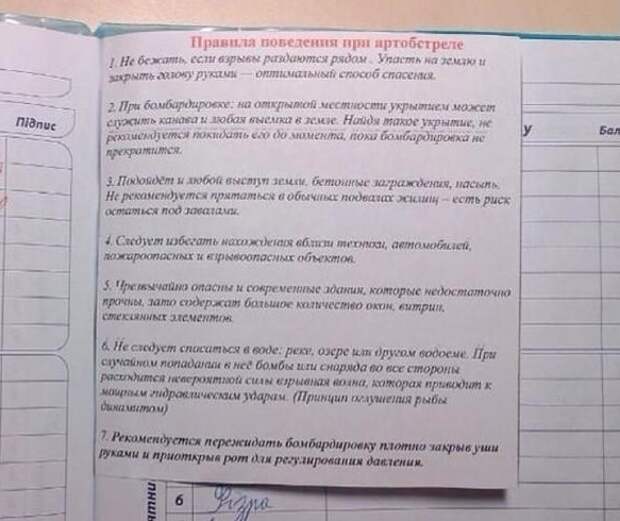 Правила поведения при артобстреле
1. Не бежать, если взрывы раздаются рядом . Упасть на землю и
закрыть голову руками — оптимальный способ спасения.
2. При бомбардировке: на открытой местности укрытием может
служить канава и любая выемка в земле. Найдя такое укрытие, не
рекомендуется покидать его до момента, пока бомбардировка не
прекратится.
3. Подойдёт и любой выступ земли, бетонные заграждения, насыпь.
Не рекомендуется прятаться в обычных подвалах жилищ – есть риск
остаться под завалами.
4. Следует избегать нахождения вблизи техники, автомобилей,
пожароопасных и взрывоопасных объектов.
5. Чрезвычайно опасны и современные здания, которые недостаточно
прочны, зато содержат большое количество окон, витрин,
стеклянных элементов.
6. Не следует спасаться в воде: реке, озере или другом водоеме. При
случайном попадании в неё бомбы или снаряда во все стороны
расходится невероятной силы взрывная волна, которая приводит к
мощным гидравлическим ударам. (Принцип оглушения рыбы
динамитом)
7. Рекомендуется пережидать бомбардировку плотно закрыв уши
руками и приоткрыв рот для регулирования давления.
Підпис
У
Бал
6